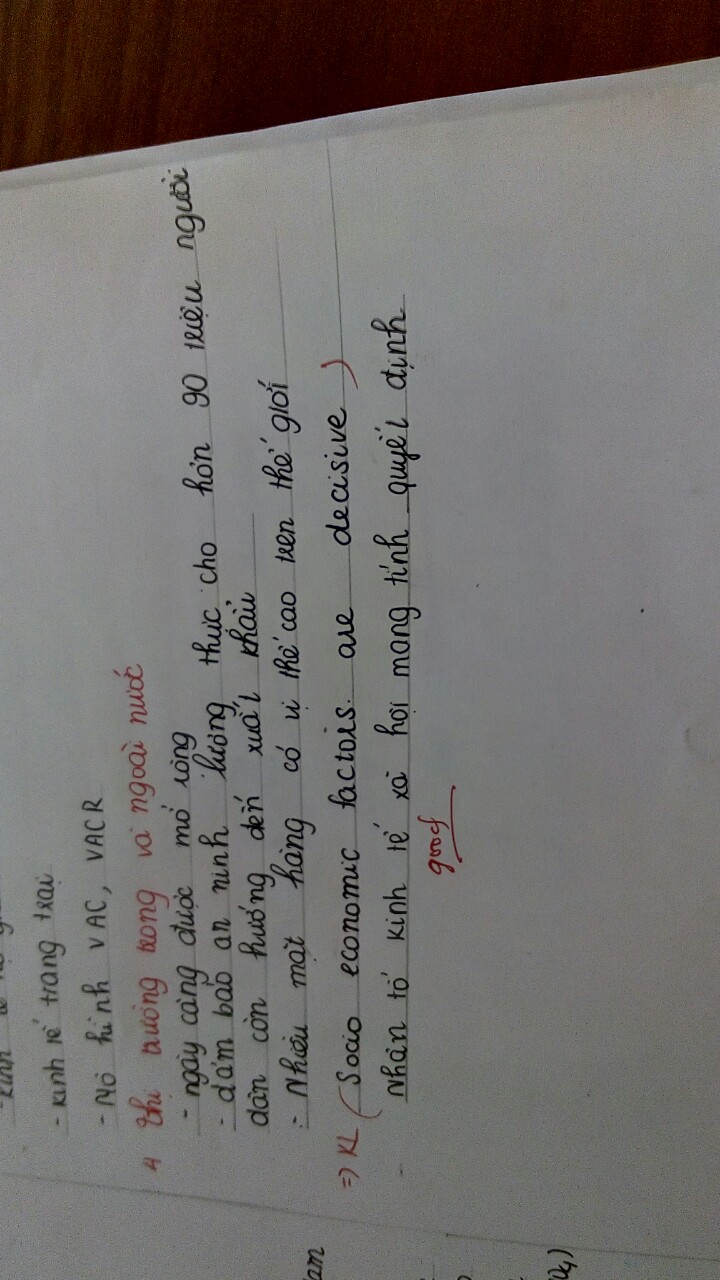 - kinh tế trang trại
- Mô hình VAC, VACR
4 thị trường trong và ngoài nước
- ngày càng được mở rộng
- đảm bảo an ninh lương thực cho hơn 90 triệu người
dân còn hướng đến xuất khẩu
- Nhiều mặt hàng có vị thế cao trên thế giới
=) KL (Socio economic factors are decisive)
Nhân tố kinh tế xã hội mang tính quyết định
good